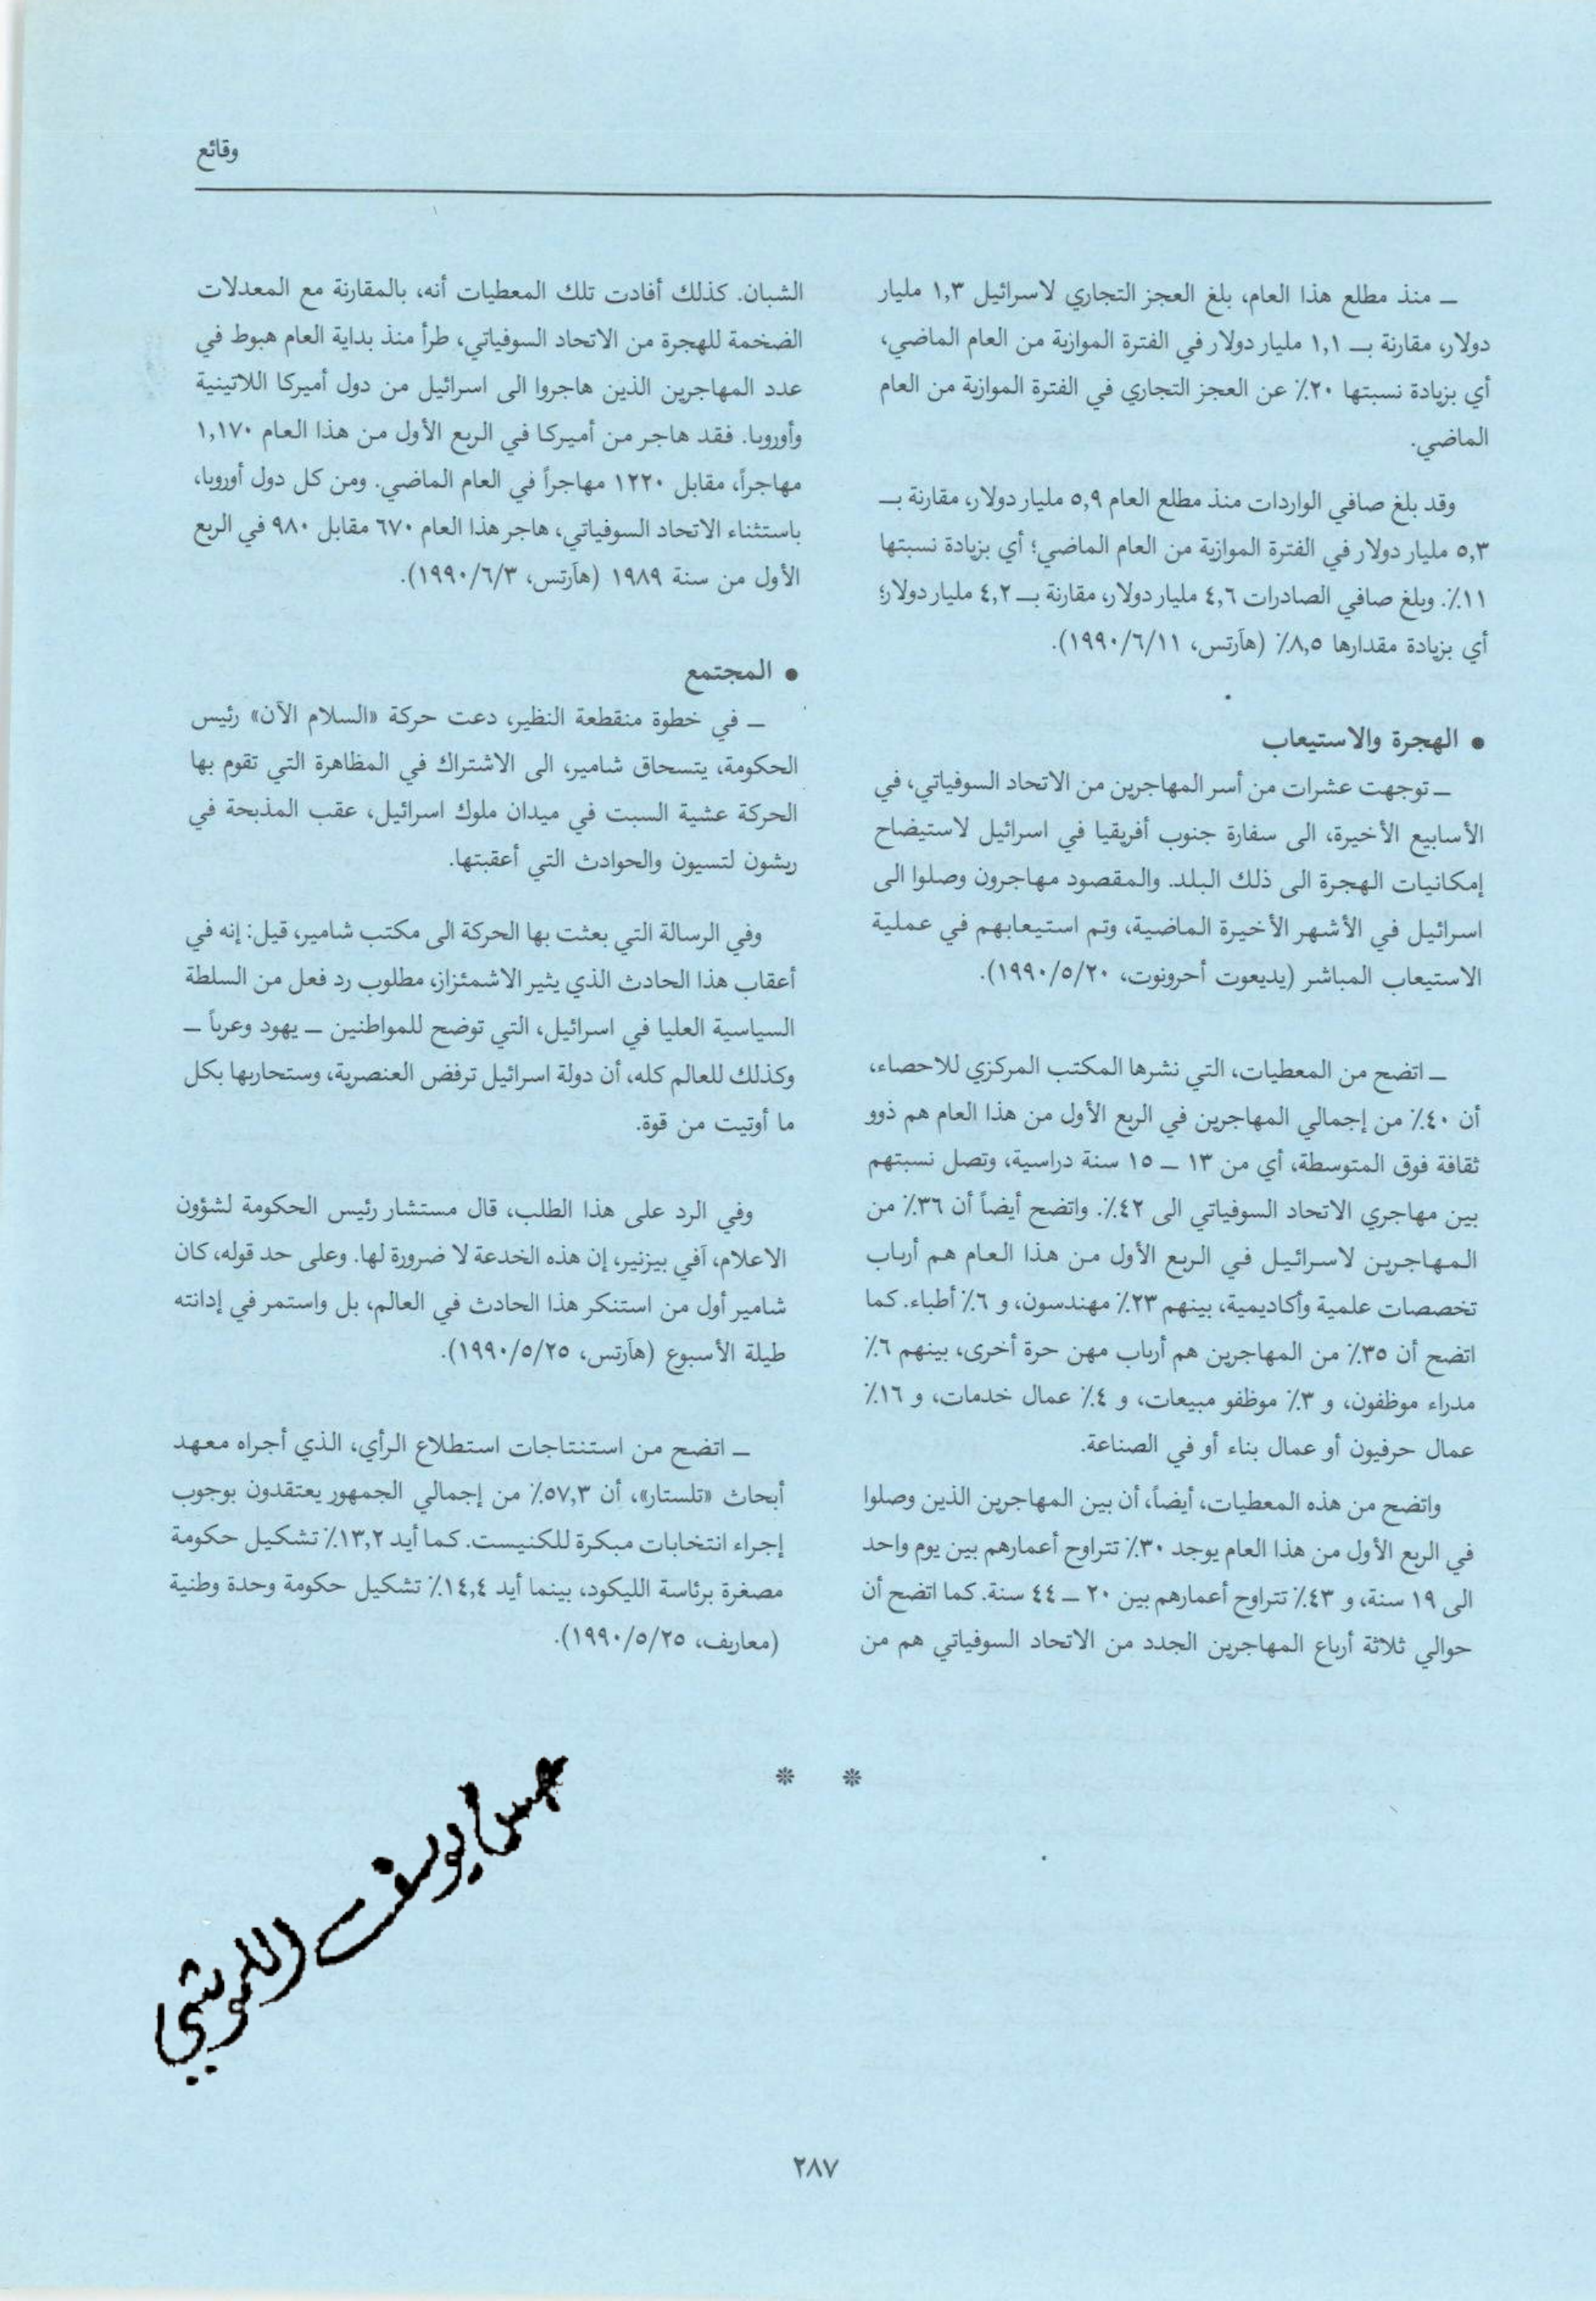 وقائع
ـ منذ مطلع هذا العام، بلغ العجز التجاري لاسرائيل ١,٣ مليار
دولار، مقارنة بـ ١,١ مليار دولار في الفترة الموازية من العام الماضي،
أي بزيادة نسبتها ٢٠٪ عن العجز التجاري في الفترة الموازية من العام
الماضي.
وقد بلغ صافي الواردات منذ مطلع العام ٥,٩ مليار دولار، مقارنة بـ
٥,٣ مليار دولار في الفترة الموازية من العام الماضي؛ أي بزيادة نسبتها
١١٪. وبلغ صافي الصادرات ٤,٦ مليار دولار، مقارنة بـ ٤,٢ مليار دولار؛
أي بزيادة مقدارها ٨,٥٪ (هآرتس، ١٩٩٠/٦/١١).
● الهجرة والاستيعاب
ـ توجهت عشرات من أسر المهاجرين من الاتحاد السوفياتي، في
الأسابيع الأخيرة، الى سفارة جنوب أفريقيا في اسرائيل لاستيضاح
إمكانيات الهجرة الى ذلك البلد. والمقصود مهاجرون وصلوا الى
اسرائيل في الأشهر الأخيرة الماضية، وتم استيعابهم في عملية
الاستيعاب المباشر (يديعوت أحرونوت، ١٩٩٠/٥/٢٠).
ـ اتضح من المعطيات، التي نشرها المكتب المركزي للاحصاء،
أن ٤٠٪ من إجمالي المهاجرين في الربع الأول من هذا العام هم ذوو
ثقافة فوق المتوسطة، أي من ١٣ ـ ١٥ سنة دراسية، وتصل نسبتهم
بين مهاجري الاتحاد السوفياتي الى ٤٢٪. واتضح أيضاً أن ٣٦٪ من
المهاجرين لاسرائيل في الربع الأول من هذا العام هم أرباب
تخصصات علمية وأكاديمية، بينهم ٢٣٪ مهندسون، و ٦٪ أطباء. كما
اتضح أن ٣٥٪ من المهاجرين هم أرباب مهن حرة أخرى، بينهم ٦٪
مدراء موظفون، و ٣٪ موظفو مبيعات، و ٤٪ عمال خدمات، و ١٦٪
عمال حرفيون أو عمال بناء أو في الصناعة.
واتضح من هذه المعطيات، أيضاً، أن بين المهاجرين الذين وصلوا
في الربع الأول من هذا العام يوجد ٣٠٪ تتراوح أعمارهم بين يوم واحد
الى ١٩ سنة، و ٤٣٪ تتراوح أعمارهم بين ٢٠ ـ ٤٤ سنة. كما اتضح أن
حوالي ثلاثة أرباع المهاجرين الجدد من الاتحاد السوفياتي هم من
الشبان. كذلك أفادت تلك المعطيات أنه، بالمقارنة مع المعدلات
الضخمة للهجرة من الاتحاد السوفياتي، طرأ منذ بداية العام هبوط في
عدد المهاجرين الذين هاجروا الى اسرائيل من دول أميركا اللاتينية
وأوروبا. فقد هاجر من أميركا في الربع الأول من هذا العام ١,١٧٠
مهاجراً، مقابل ١٢٢٠ مهاجراً في العام الماضي. ومن كل دول أوروبا،
باستثناء الاتحاد السوفياتي، هاجر هذا العام ٦٧٠ مقابل ٩٨٠ في الربع
الأول من سنة ١٩٨٩ (هآرتس، ١٩٩٠/٦/٣).
● المجتمع
ـ في خطوة منقطعة النظير، دعت حركة «السلام الآن» رئيس
الحكومة، يتسحاق شامير، الى الاشتراك في المظاهرة التي تقوم بها
الحركة عشية السبت في ميدان ملوك اسرائيل، عقب المذبحة في
ريشون لتسيون والحوادث التي أعقبتها.
وفي الرسالة التي بعثت بها الحركة الى مكتب شامير، قيل: إنه في
أعقاب هذا الحادث الذي يثير الاشمئزاز، مطلوب رد فعل من السلطة
السياسية العليا في اسرائيل، التي توضح للمواطنين ـ يهود وعرباً ـ
وكذلك للعالم كله، أن دولة اسرائيل ترفض العنصرية، وستحاربها بكل
ما أوتيت من قوة.
وفي الرد على هذا الطلب، قال مستشار رئيس الحكومة لشؤون
الاعلام، آفي بيزنير، إن هذه الخدعة لا ضرورة لها. وعلى حد قوله، كان
شامير أول من استنكر هذا الحادث في العالم، بل واستمر في إدانته
طيلة الأسبوع (هآرتس، ١٩٩٠/٥/٢٥).
ـ اتضح من استنتاجات استطلاع الرأي، الذي أجراه معهد
أبحاث «تلستار»، أن ٥٧,٣٪ من إجمالي الجمهور يعتقدون بوجوب
إجراء انتخابات مبكرة للكنيست. كما أيد ١٣,٢٪ تشكيل حكومة
مصغرة برئاسة الليكود، بينما أيد ١٤,٤٪ تشكيل حكومة وحدة وطنية
(معاريف، ١٩٩٠/٥/٢٥).
❊ ❊
يوسف
٢٨٧